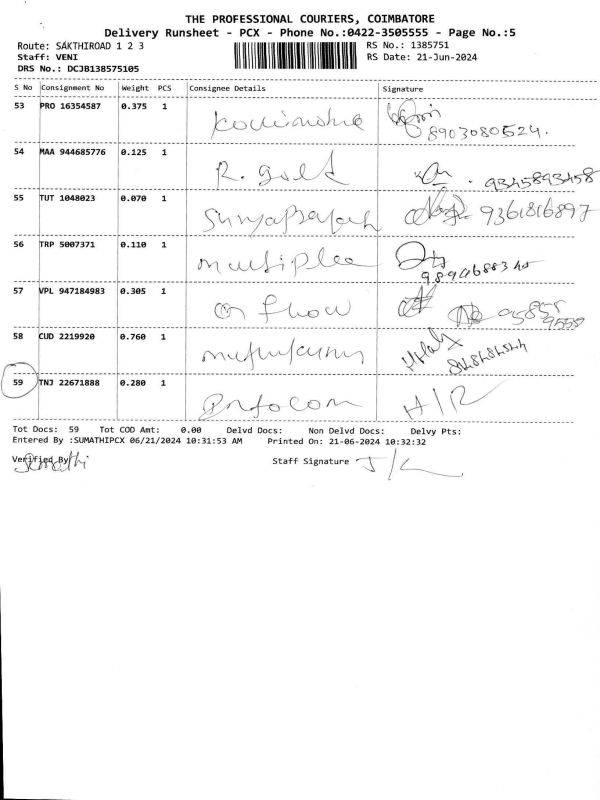 THE PROFESSIONAL COURIERS, COIMBATORE
Delivery Runsheet - PCX - Phone No.:0422-3505555 - Page No.:5
Route: SAKTHIROAD 1 2 3 RS No.: 1385751
Staff: VENI RS Date: 21-Jun-2024
DRS No.: DCJB138575105
S No Consignment No Weight PCS Consignee Details Signature
53 PRO 16354587 0.375 1
8903080524.
54 MAA 944685776 0.125 1 R. gold
9345893458
55 TUT 1048023 0.070 1 Suryaprakash 9361816897
56 TRP 5007371 0.110 1 multiplee
57 VPL 947184983 0.305 1 on flow
95855
9558
58 CUD 2219920 0.760 1
59 TNJ 22671888 0.280 1 Infocom H/R
Tot Docs: 59 Tot COD Amt: 0.00 Delvd Docs: Non Delvd Docs: Delvy Pts:
Entered By :SUMATHIPCX 06/21/2024 10:31:53 AM Printed On: 21-06-2024 10:32:32
Verified By Staff Signature